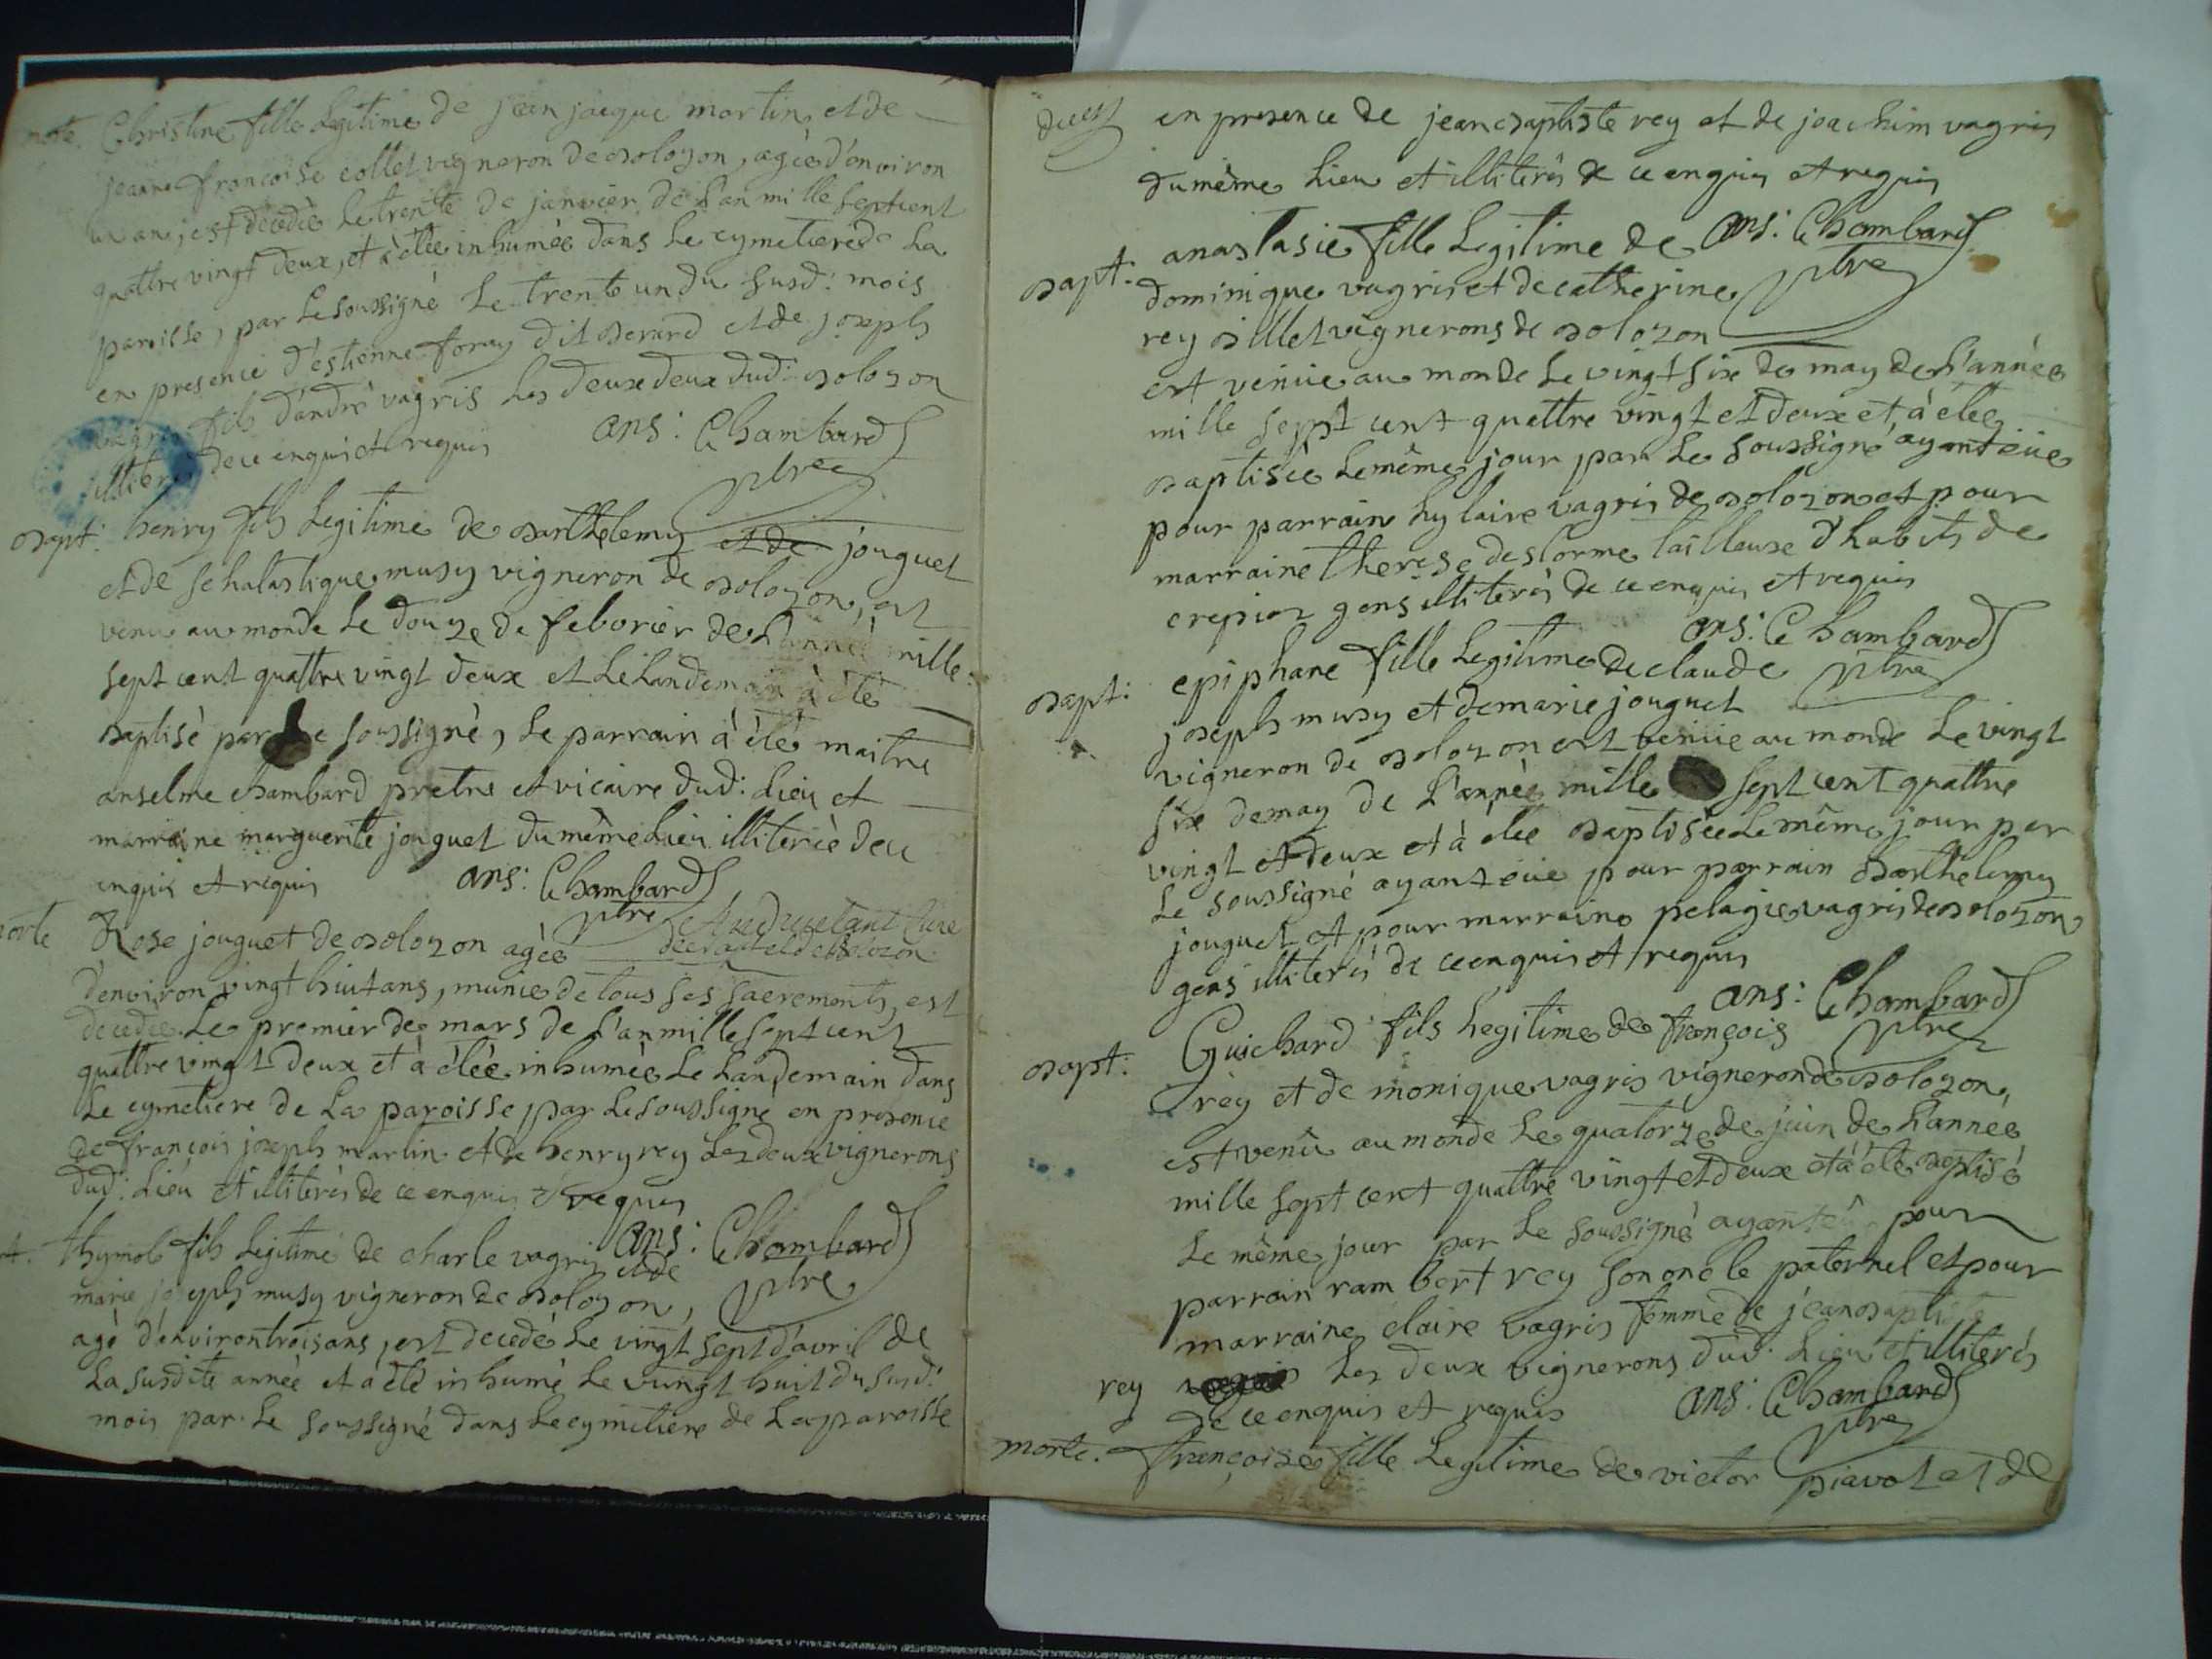 morte. Christine fille Legitime de jean jacque martin et de
jeanne francoise collet vigneron de bolozon, agèe d'environ
un an, est decedèe le trente de janvier de L'an mille septcent
quattre vingt deux, et à étèe inhumèe dans Le cymetiere de La
paroisse, par Le soussigné Le trente un du susd: mois
en presence d'estienne foray dit berard et de joseph
vagris fils d'andrè vagris Les deux deux dud: bolozon
illiterés de ce enquis et requis ans: Chambard
ptre
bapt: henry fils Legitime de barthelemy et de jouguet
et de schalastique musy vigneron de bolozon, est
venu au monde Le douze de feborier de L'année mille
sept cent quattre vingt deux et Le Landemain à été
baptisé par Le soussigné, Le parrain à été maitre
anselme chambard pretre et vicaire dud: Lieu et
marraine marguerite jouguet du même Lieu illiterée de ce
enquis et requis ans: Chambard
ptre
Curé
morte Rose jouguet de bolozon agèe
d'environ vingt huit ans, munie de tous ses sacrements, est
decedèe Le premier de mars de L'an mille sept cent
quattre vingt deux et à étée inhumée Le Landemain dans
Le cymetiere de La paroisse par Le soussigné en presence
de françois joseph martin et de henry rey Les deux vignerons
dud: Lieu et illiterés de ce enquis et requis
thymole fils Legitime de charle vagris et de ans: Chambard
marie joseph musy vigneron de bolozon, ptre
agé d'environ trois ans, est decedé Le vingt sept d'avril de
La susdite année et à été inhumé Le vingt huit du susd:
mois par Le soussigné dans Le cymetiere de La paroisse
en presence de jean baptiste rey et de joachim vagris
du même Lieu et illiterés de ce enquis et requis
bapt: anastasie fille Legitime de ans: Chambard
dominique vagris et de catherine ptre
rey billet vignerons de bolozon
est venüe au monde Le vingt six de may de L'année
mille sept cent quattre vingt et deux et à étée
baptisée Le même jour par Le soussigné ayant eüe
pour parrain hylaire vagris de bolozon et pour
marraine therese deslorme tailleuse d'habits de
crepiaz gens illiterés de ce enquis et requis
ans: Chambard
bapt: epiphane fille Legitime de claude ptre
joseph musy et de marie jouguet
vigneron de bolozon est venüe au monde Le vingt
six de may de L'année mille sept cent quattre
vingt et deux et à étée baptisée Le même jour par
Le soussigné ayant eüe pour parrain barthelemy
jouguet et pour marraine pelagie vagris de bolozon
gens illiterés de ce enquis et requis
ans: Chambard
bapt: Guichard fils Legitime de françois ptre
rey et de monique vagris vigneron de bolozon,
est venû au monde Le quatorze de juin de L'année
mille sept cent quattre vingt et deux et à été baptisé
Le même jour par Le soussigné ayant eû pour
parrain rambert rey son oncle paternel et pour
marraine claire vagris femme de jean baptiste
rey Les deux vignerons dud: Lieu et illiterés
de ce enquis et requis ans: Chambard
ptre
morte. françoise fille Legitime de victor piavot et de